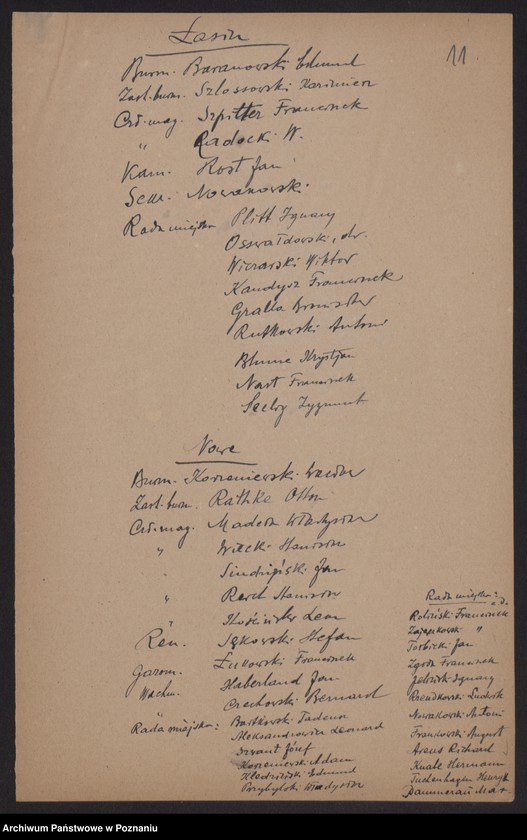 11.
Łasin
Burm. Baranowski Edmund
Zast. burm. Szlossowski Kazimierz
Czł. mag. Szpitter Franciszek
" Radacki W.
Kam. Rost Jan
Sekr. Nowakowski
Rada miejska Plitt Ignacy
Osswałdowski, dr.
Wiczarski Wiktor
Kandyba Franciszek
Gralla Bronisław
Rutkowski Antoni
Blume Krystjan
Nast Franciszek
Zygmunt
Nowe
Burm. Korzeniewski Wacław
Zast. burm. Rathke Otton
Czł. mag. Madera Władysław
" Wiecki Stanisław
Jan
" Stanisław
Leon
Ren. Jękowski Stefan
Gazom. Żurowski Franciszek
Wachm. Haberland Jan
" Czechowski Bernard
Rada miejska: Bartkowski Tadeusz
Aleksandrowicz Leonard
Szwant Józef
Korzeniewski Adam
Kledziński Edmund
Przybylski Władysław
Rada miejska: c. d.
Roliński Franciszek
Zającikowski "
Torbicki Jan
Zgoda Franciszek
Jeliński Ignacy
Prendkowski Ludwik
Nowakowski Antoni
Frankowski August
Arens Richard
Knabe Hermann
Tuchenhagen Henryk
Dammerau Max.
Archiwum Państwowe w Poznaniu